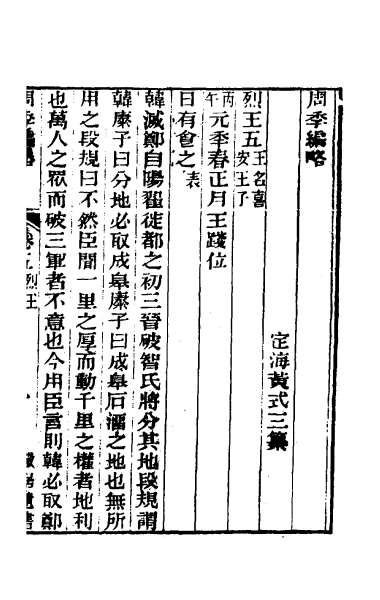 周季編略
定海黃式三纂
烈王五 王名喜安王子
丙午 元秊春正月王踐位
日有食之 表
韓滅鄭自陽翟徙都之初三晉破智氏將分其地段規謂
韓康子曰分地必取成皋康子曰成皋石溜之地也無所
用之段規曰不然臣聞一里之厚而動千里之權者地利
也萬人之眾而破三軍者不意也今用臣言則韓必取鄭
周季編略 烈王